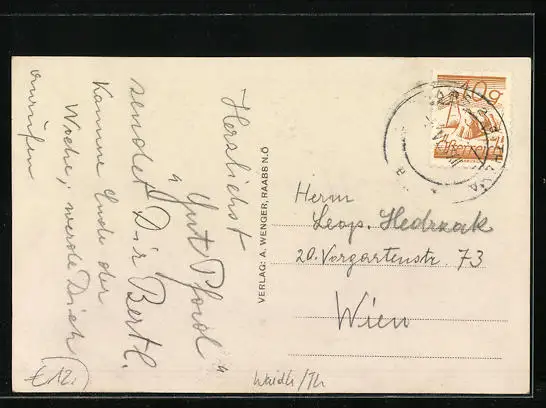 Herzlichst
"Gut Pfad"
sendet Dir Bertl.
Komme Ende der
Woche, werde Dich
anrufen
VERLAG: A. WENGER, RAABS N.Ö
10g
Österreich
Herrn
Leop. Hedrzak
20. Vorgartenstr. 73
Wien
Waidh/Th
€12.